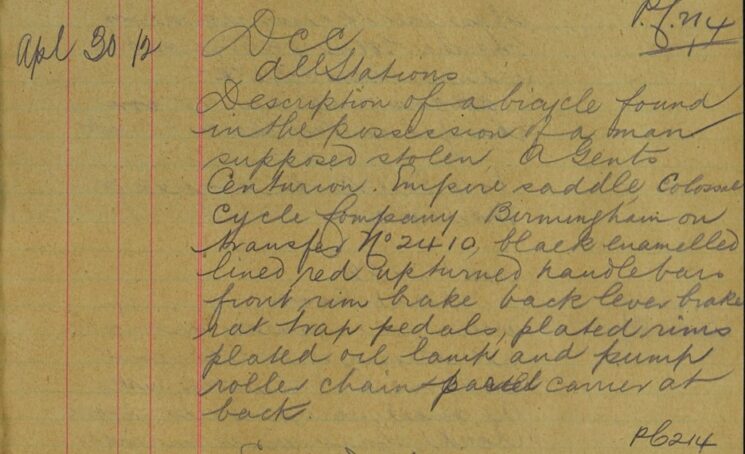 Apl 30 12
P.C. 214
DCC
All Stations
Description of a bicycle found
in the possession of a man
supposed stolen, A Gents
Centurion. Empire saddle, Colossal
Cycle Company Birmingham on
transfer No 2410, black enamelled
lined red upturned handlebars
front rim brake back lever brake
rat trap pedals, plated rims
plated oil lamp and pump
roller chain parcel carrier at
back.
PC 214